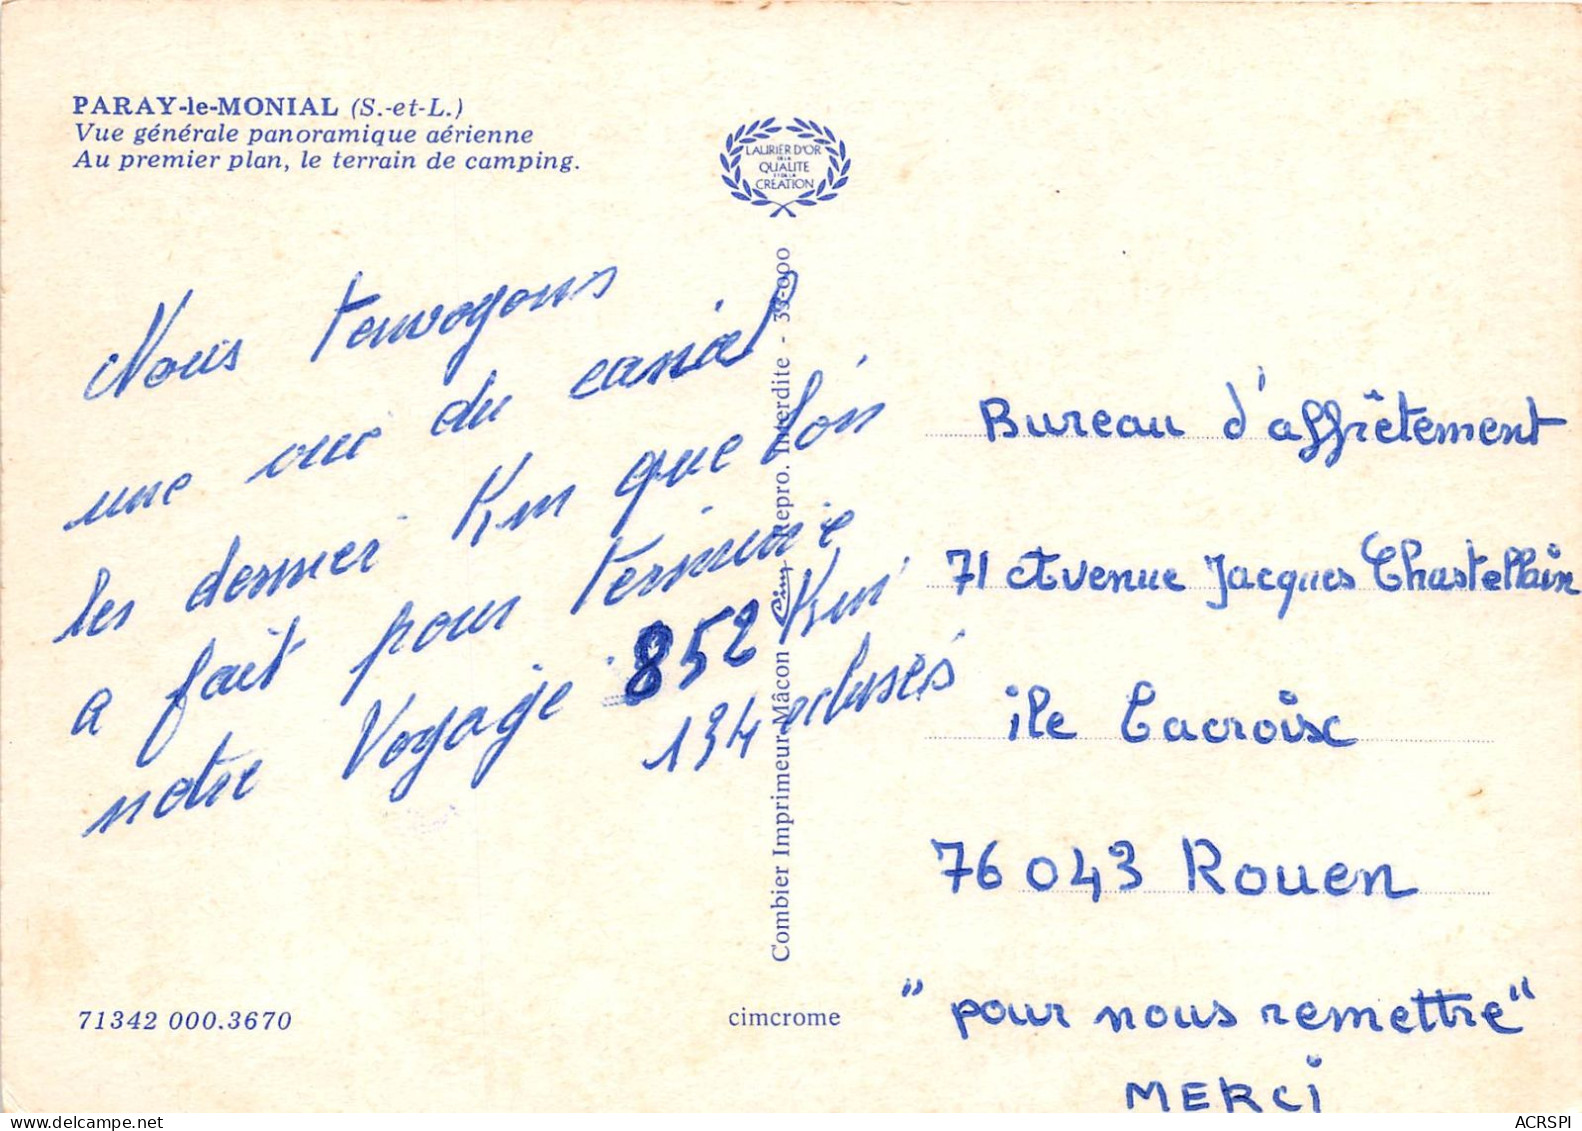 PARAY-le-MONIAL (S.-et-L.)
Vue générale panoramique aérienne
Au premier plan, le terrain de camping.
LAURIER D'OR
DE LA
QUALITE
ET DE LA
CREATION
Nous tenvoyons
une vue du canal
les dernier Km que lòn
a fait pour terminre
notre Voyage 852 Km
134 ecluses
Combier Imprimeur Mâcon Cim Repro. Interdite - 39-000
Bureau d'affrêtement
71 Avenue Jacques Chastellain
ile Lacroix
76 043 Rouen
"pour nous remettre"
MERCi
71342 000.3670
cimcrome
ACRSPI